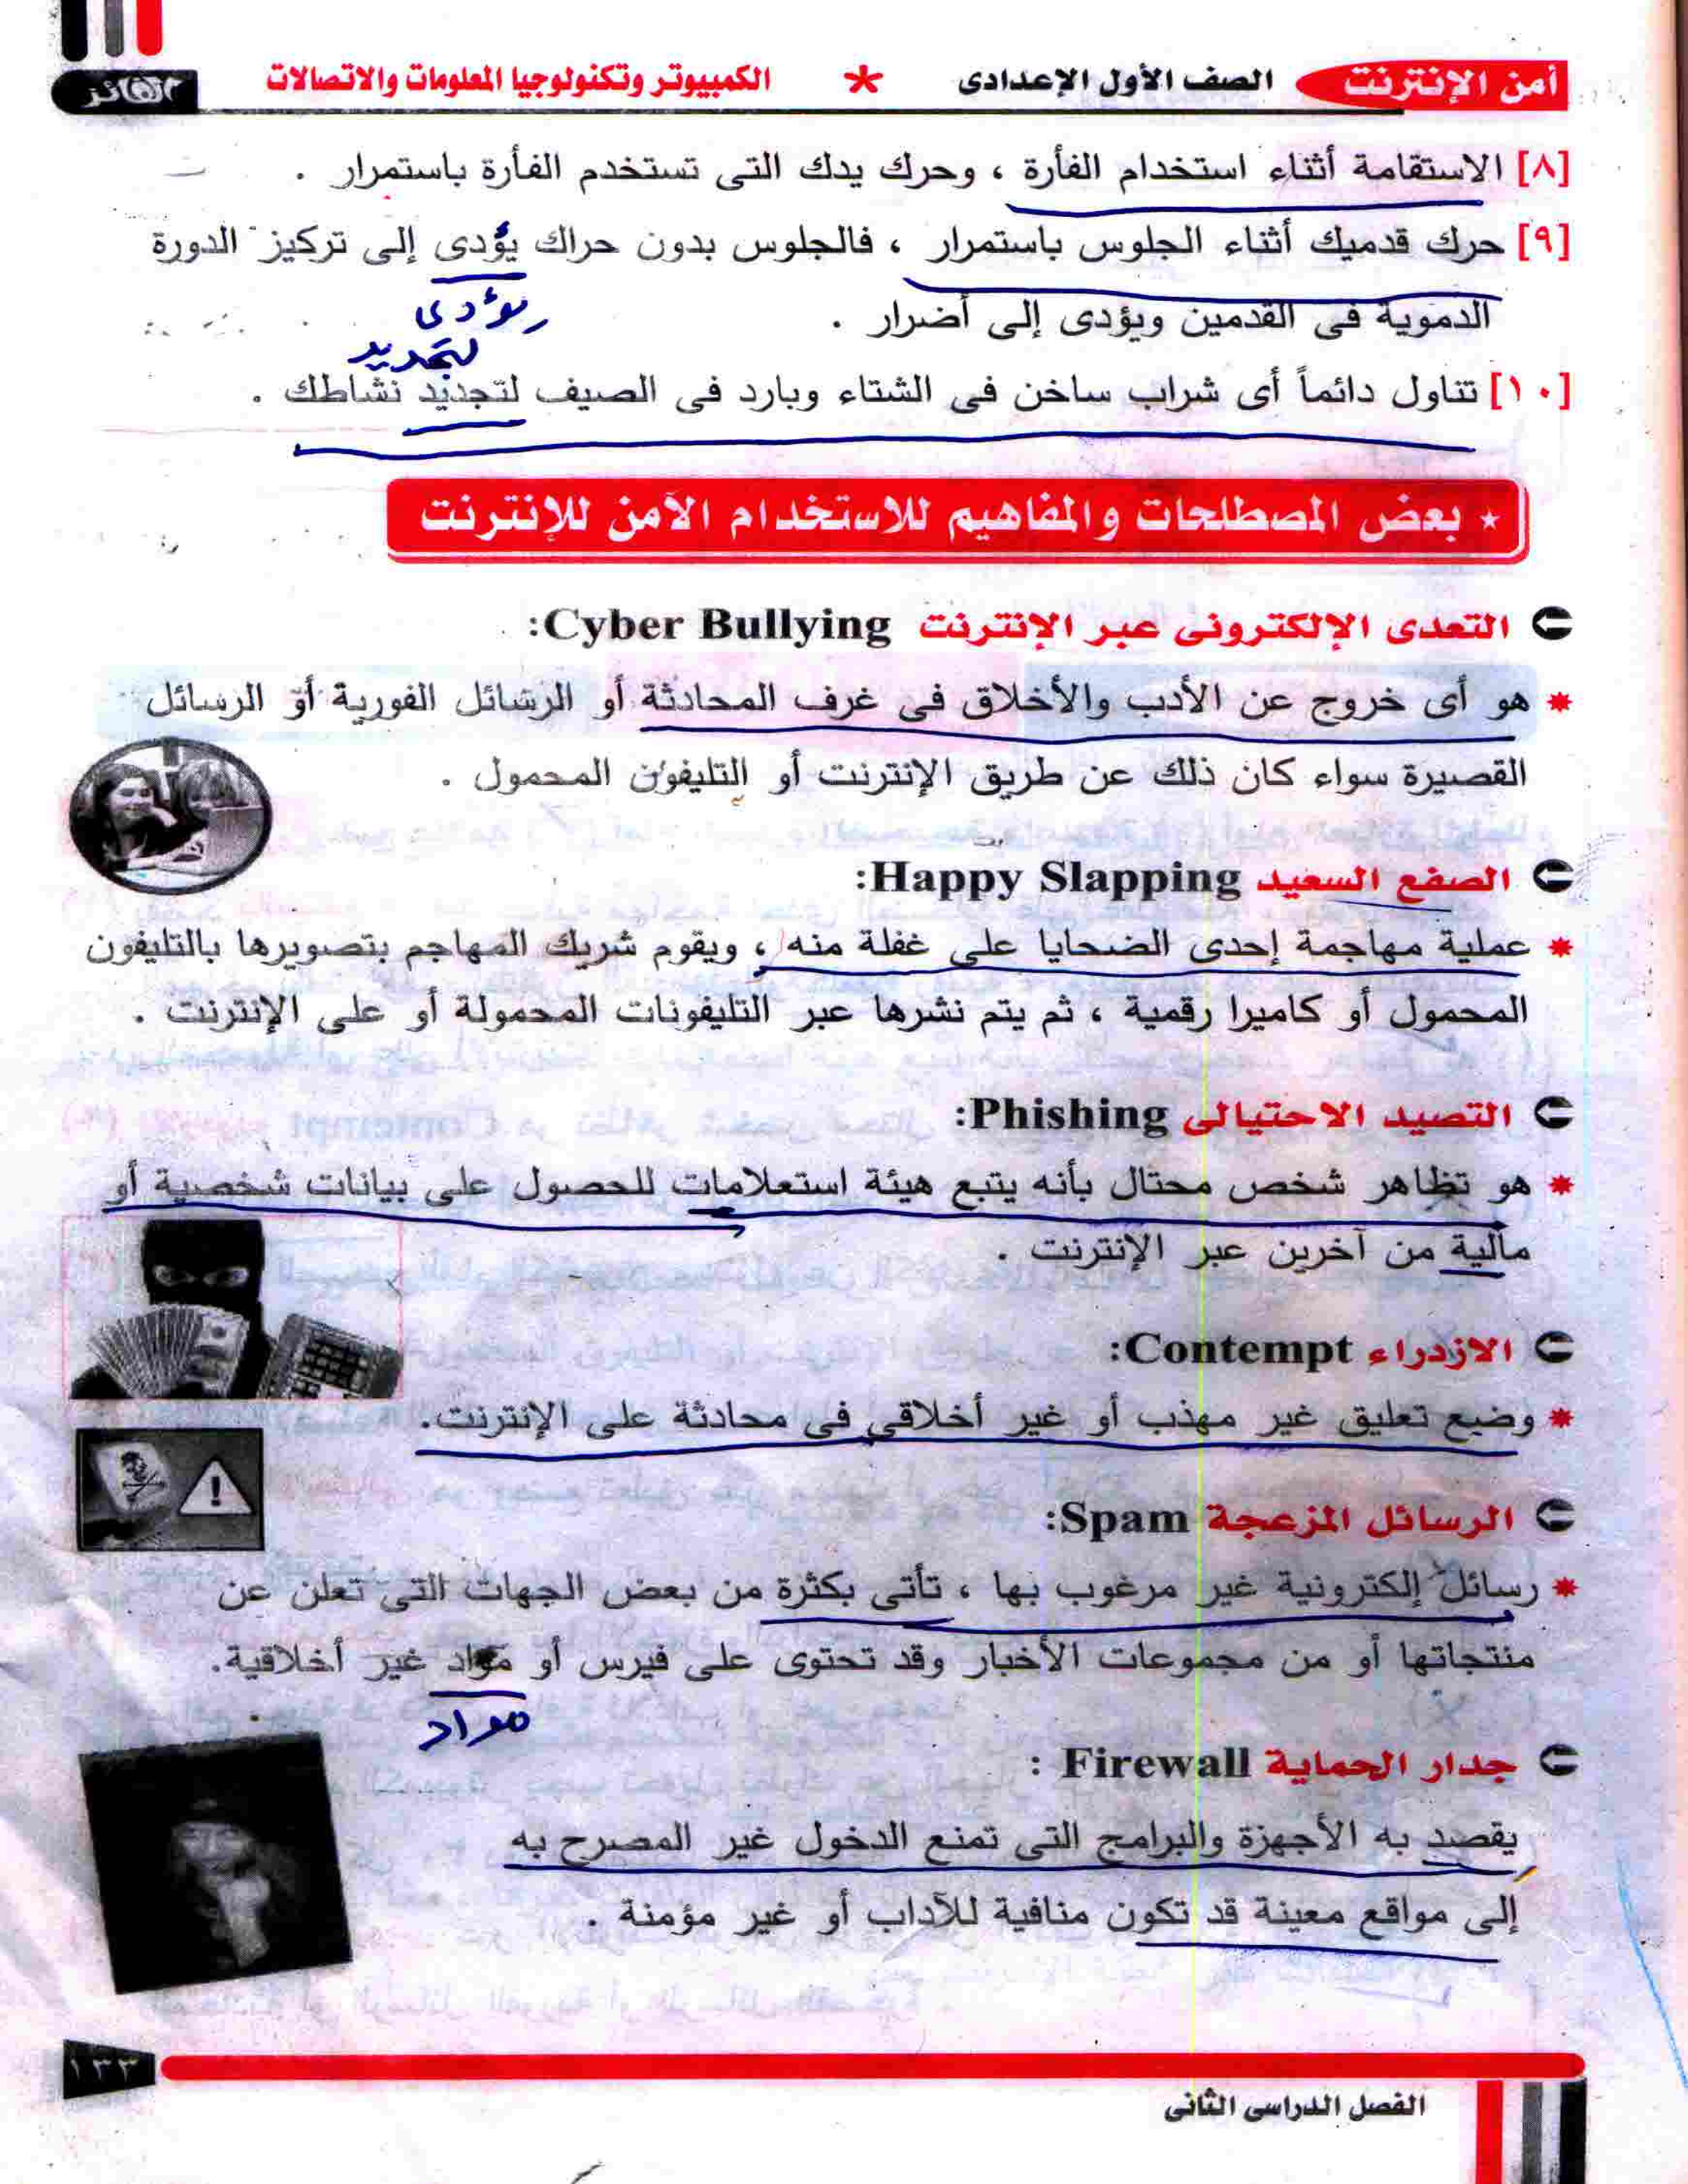 أمن الإنترنت الصف الأول الإعدادى * الكمبيوتر وتكنولوجيا المعلومات والاتصالات الفائز
[٨] الاستقامة أثناء استخدام الفأرة ، وحرك يدك التى تستخدم الفأرة باستمرار .
[٩] حرك قدميك أثناء الجلوس باستمرار ، فالجلوس بدون حراك يؤدى إلى تركيز الدورة
الدموية فى القدمين ويؤدى إلى أضرار .
يؤدى
لتجديد
[١٠] تناول دائماً أى شراب ساخن فى الشتاء وبارد فى الصيف لتجديد نشاطك .
* بعض المصطلحات والمفاهيم للاستخدام الآمن للإنترنت
التعدى الإلكترونى عبر الإنترنت Cyber Bullying:
* هو أى خروج عن الأدب والأخلاق فى غرف المحادثة أو الرسائل الفورية أو الرسائل
القصيرة سواء كان ذلك عن طريق الإنترنت أو التليفون المحمول .
الصفع السعيد Happy Slapping:
* عملية مهاجمة إحدى الضحايا على غفلة منه ، ويقوم شريك المهاجم بتصويرها بالتليفون
المحمول أو كاميرا رقمية ، ثم يتم نشرها عبر التليفونات المحمولة أو على الإنترنت .
التصيد الاحتيالى Phishing:
* هو تظاهر شخص محتال بأنه يتبع هيئة استعلامات للحصول على بيانات شخصية أو
مالية من آخرين عبر الإنترنت .
الازدراء Contempt:
* وضع تعليق غير مهذب أو غير أخلاقى فى محادثة على الإنترنت.
الرسائل المزعجة Spam:
* رسائل إلكترونية غير مرغوب بها ، تأتى بكثرة من بعض الجهات التى تعلن عن
منتجاتها أو من مجموعات الأخبار وقد تحتوى على فيرس أو مواد غير أخلاقية.
مواد
جدار الحماية Firewall :
يقصد به الأجهزة والبرامج التى تمنع الدخول غير المصرح به
إلى مواقع معينة قد تكون منافية للآداب أو غير مؤمنة .
١٣٣
الفصل الدراسى الثانى